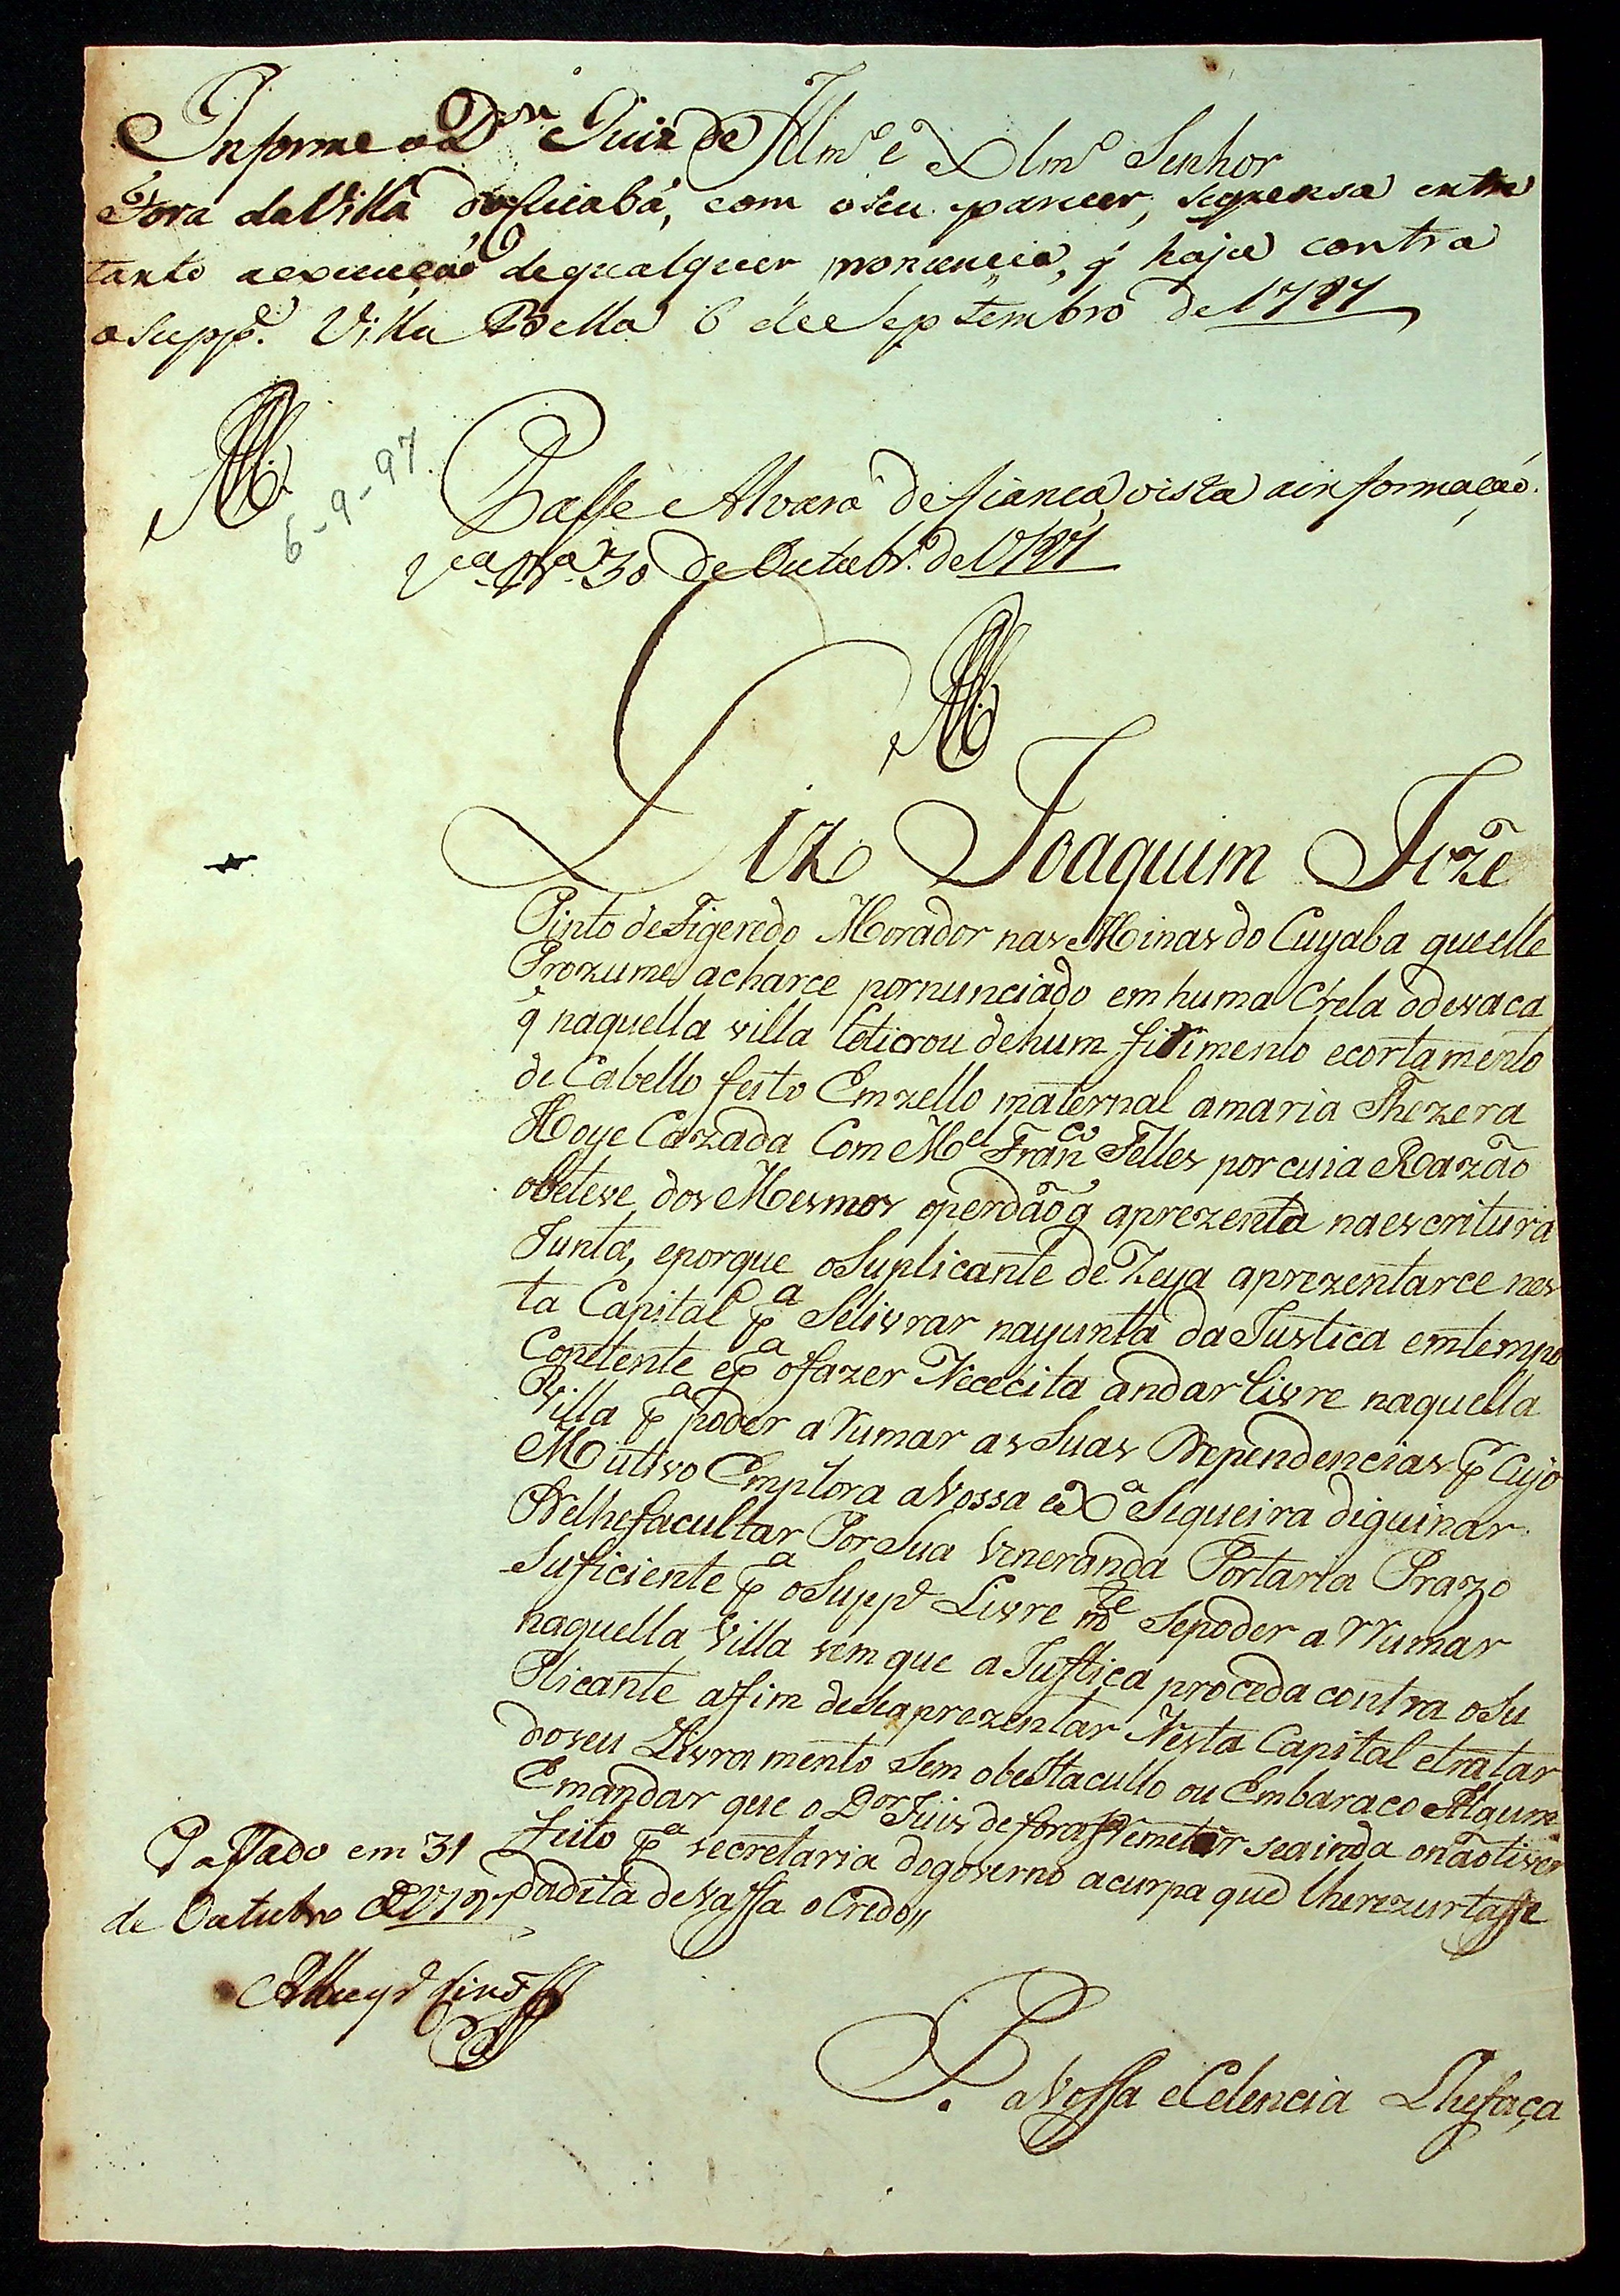 Illmº e Exlmº Senhor
Informe o Dºr Juiz de
Fora da Villa do Cuiabá, com o seu parecer, suspensa entre
tanto a execução de qualquer pronuncia, q̃ haja contra
o Suppe. Villa Bella 6 de Septembro de 1797
6-9-97
Passe Alvará de fiança, vista a informação.
Va. Ba. 30 de Outubrº. de 1797
Diz Joaquim Joze
Pinto de Figeredo Morador nas Minas do Cuyaba que elle
Prozume acharce pornunciado em huma Crela o devaca
q̃ naquella villa Cetirou de hum firimento e cortamento
de Cabello feito Em zello maternal a maria Thezera
Hoye Cazada Com Mel Franco Telles por cuia Razão
obeteve dos Mesmos o perdão q̃ aprezenta na escritura
Junta, e porque o Suplicante de Zeya aprezentarce nes
ta Capital pa Selivrar na yunta da Justica em tempo
Contente e pa o fazer Nececita andar livre naquella
Villa pa poder a Rumar as Suas Dependencias p Cujo
Mutivo Emplora a Vossa exa Sequeira diguinar
De lhe facultar Por Sua Veneranda Portaria Prazo
Suficiente pa o Suppe Livre mte Sepoder a RRumar
naquella Villa sem que a Justica proceda contra o Su
Plicante afim de se aprezentar Nesta Capital e tratar
do seu Livramento Sem obestacullo ou Embaraco Algum
E mandar que o Dor Juis de fora Remeter se ainda o não tiver
feito pa secretaria do governo a curpa que lhe rezurtasse
da dita devassa o Credo
Passado em 31
de Outubro de 1797
P. a Vossa eCelencia Lhe faça